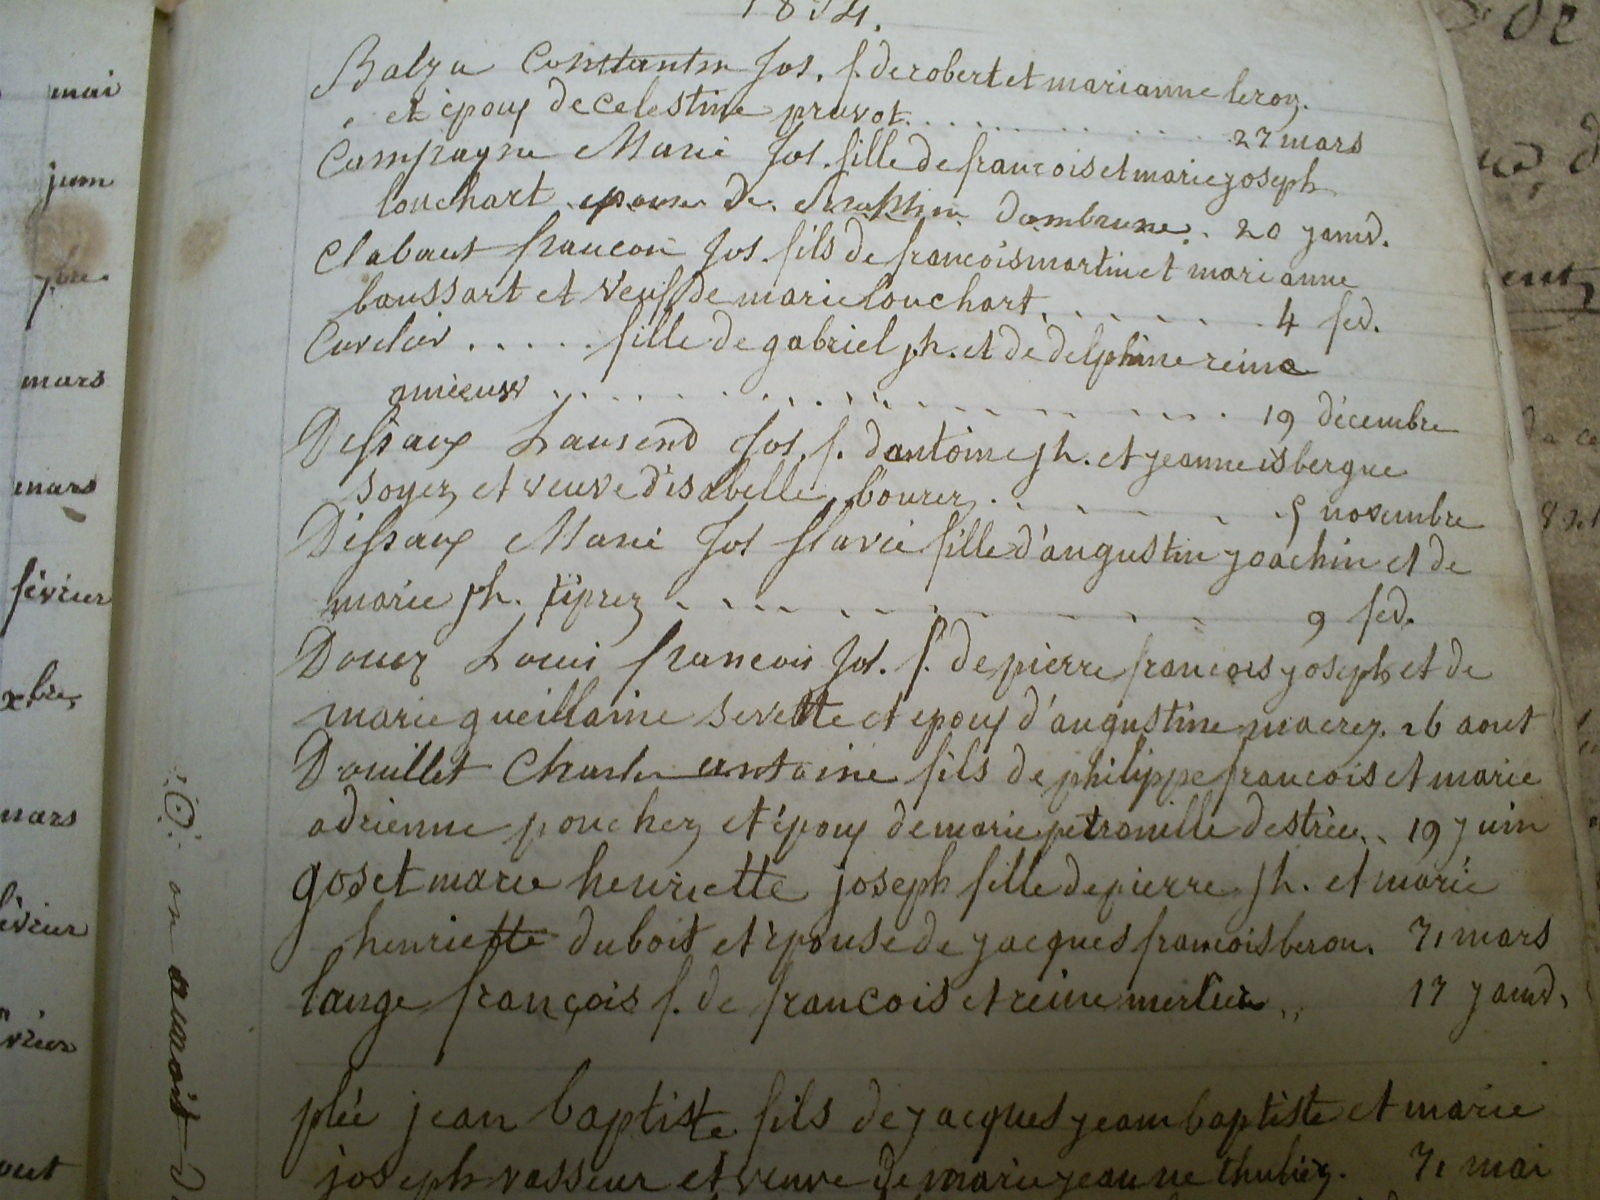 mai
juin
7bre
mars
mars
février
xbre
mars
février
février
aout
on
1814.
Balza Constantin Jos. f. de robert et marianne leroy.
et epoux de celestine pruvot. . . . . . . . . . . 27 mars
Campagne Marie Jos. fille de francois et marie joseph
louchart epouse de Seraphin dambrune. . 20 janv.
Clabaut francois Jos. fils de francois martin et marianne
baussart et veuf de marie louchart. . . . . . . 4 fev.
Cuvelier . . . . . fille de gabriel jh. et de delphine reine
amieux . . . . . . . . . . . . . . . . . . . 19 décembre
Dessaux Laurend Jos. f. dantoine jh. et jeanne isbergue
soyez et veuve d'isabelle bourez . . . . . . 5 novembre
Dessaux Marie Jos flavie fille d'augustin joachin et de
marie jh. . . . . . . . . . . . 9 fev.
Douez Louis francois Jos. f. de pierre francois joseph et de
marie gueillaine sevette et epoux d'augustine macrez. 26 aout
Douillet Charles antoine fils de philippe francois et marie
adrienne pouchez et époux de marie petronille destrée. . 19 juin
goset marie henriette joseph fille de pierre jh. et marie
henriette dubois et epouse de jacques francois berou. 31 mars
lange françois f. de francois et reine merlier . . 17 janv.
plée jean baptiste fils de jacques jean baptiste et marie
joseph vasseur et veuve de marie jeanne thuliez. 31 mai